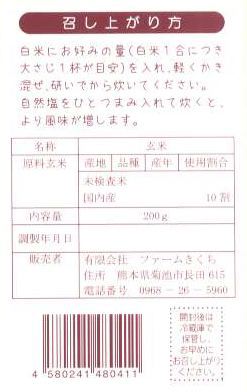 召し上がり方
白米にお好みの量(白米1合につき
大さじ1杯が目安)を入れ、軽くかき
混ぜ、研いでから炊いてください。
自然塩をひとつまみ入れて炊くと、
より風味が増します。
名称 玄米
原料玄米 産地 品種 産年 使用割合
未検査米
国内産 10割
内容量 200g
調製年月日
販売者 有限会社 ファームきくち
住所 熊本県菊池市長田615
電話番号 0968-26-5960
開封後は
冷蔵庫で
保管し、
お早めに
お召し上がり
ください。
4 580241 480411